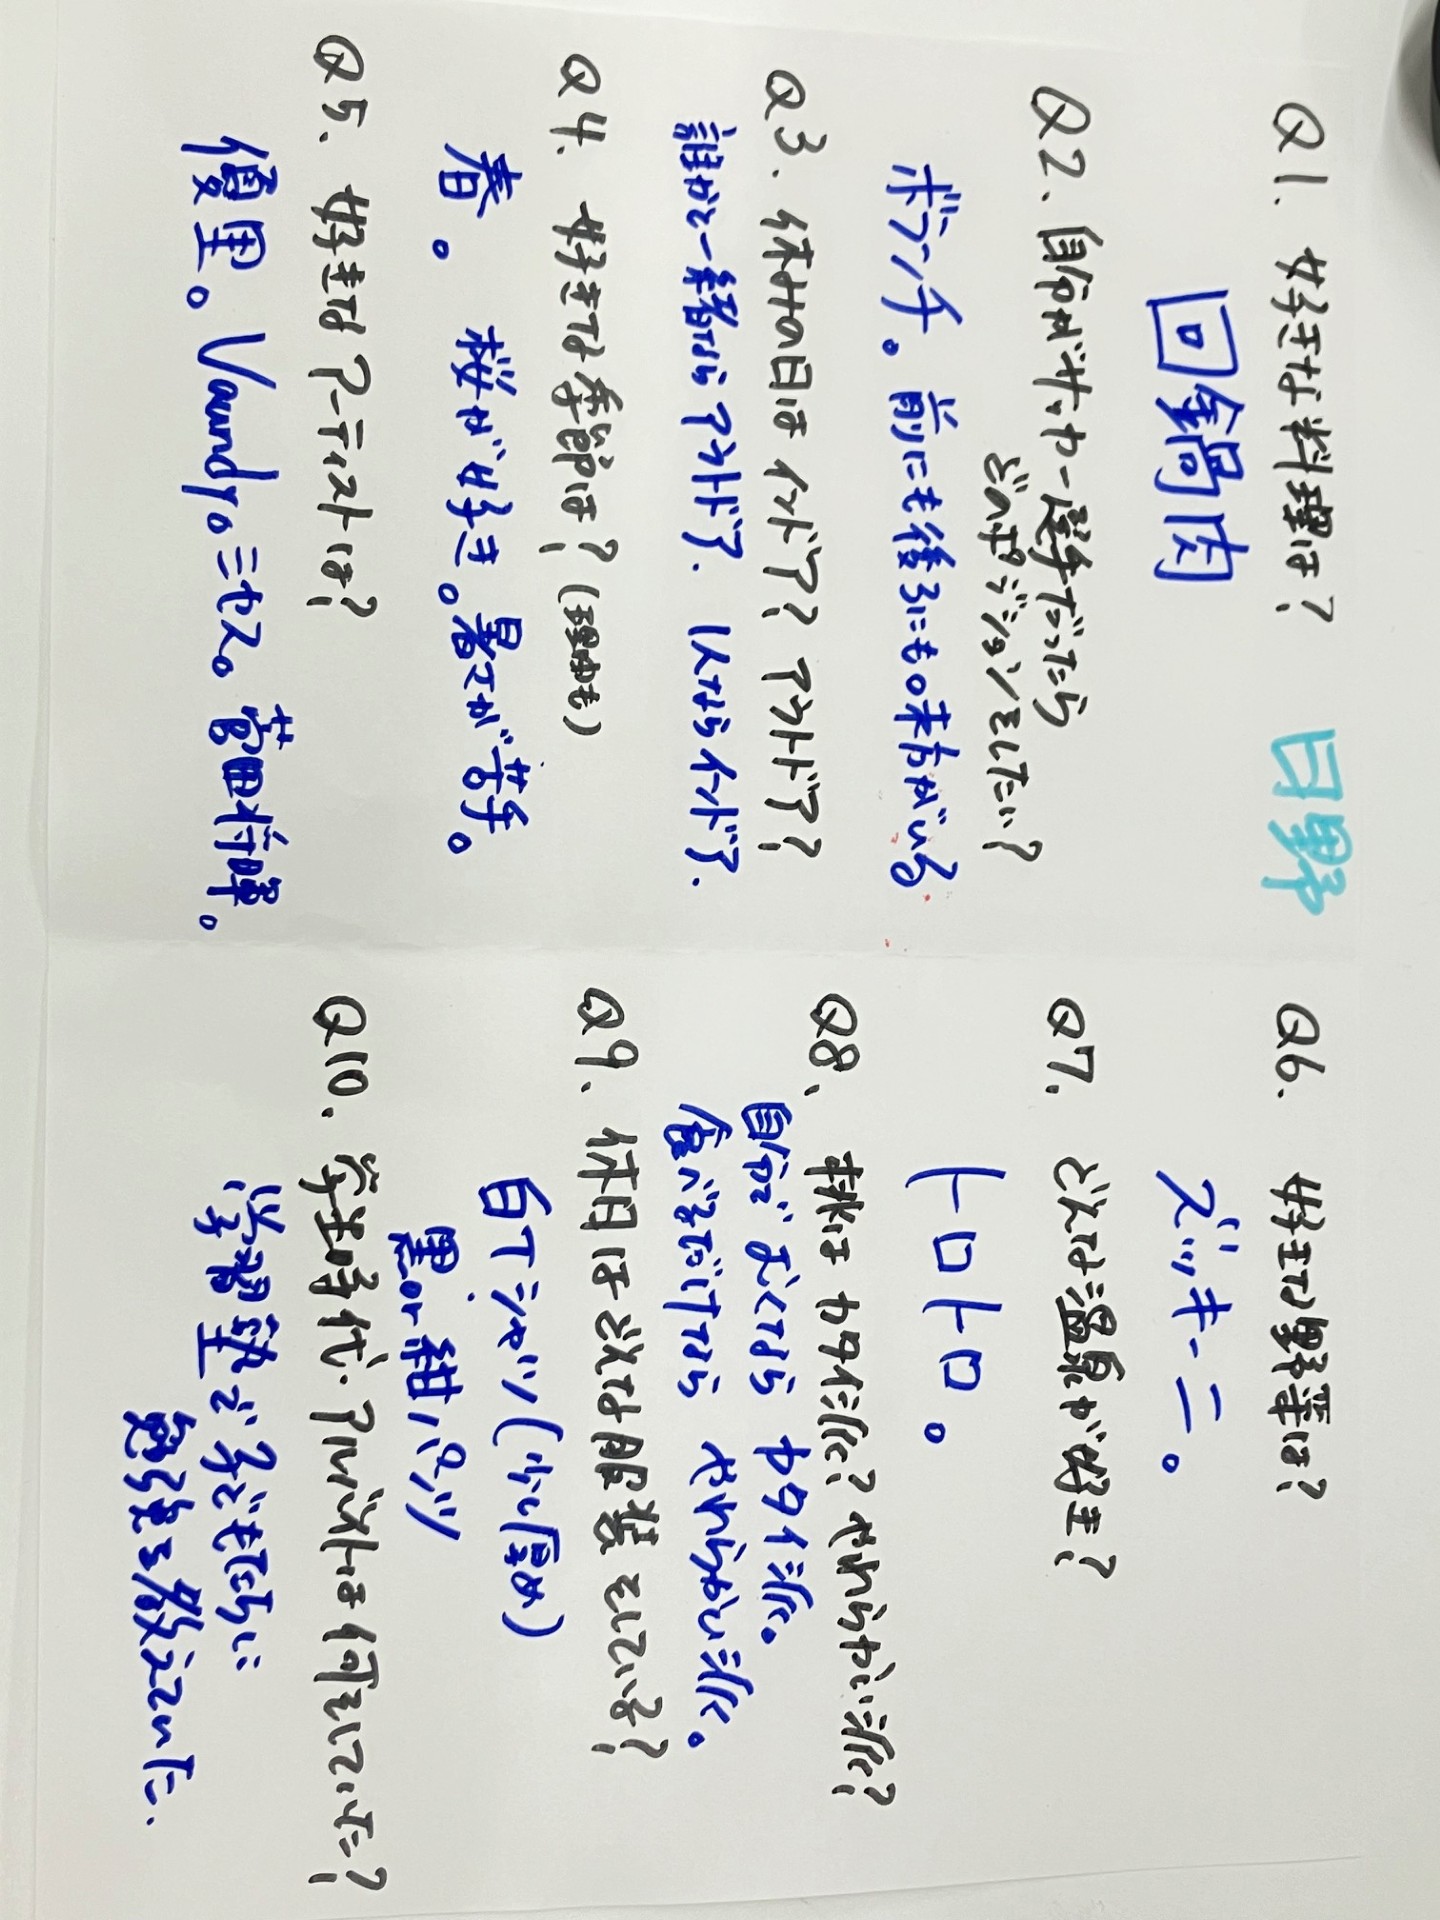 日野
Q1. 好きな料理は?
回鍋肉
Q2、自分がサッカー選手だったら
どのポジションをしたい?
ボランチ。前にも後ろにも味方がいる
Q3、休みの日はインドア?アウトドア?
誰かと一緒ならアウトドア. 1人ならインドア.
Q4、好きな季節は?(理由も)
春。桜が好き。暑さが苦手。
Q5、好きなアーティストは?
優里。Vaundy。ミセス。菅田将暉。
Q6. 好きな野菜は?
ズッキーニ。
Q7. どんな温泉が好き?
トロトロ。
Q8、桃はカタイ派?やわらかい派?
自分でむくならカタイ派。
食べるだけならやわらかい派。
Q9、休日はどんな服装をしている?
白Tシャツ(少し厚め)
黒or紺パンツ
Q10. 学生時代、アルバイトは何をしていた?
学習塾で子どもたちに
勉強を教えていた.